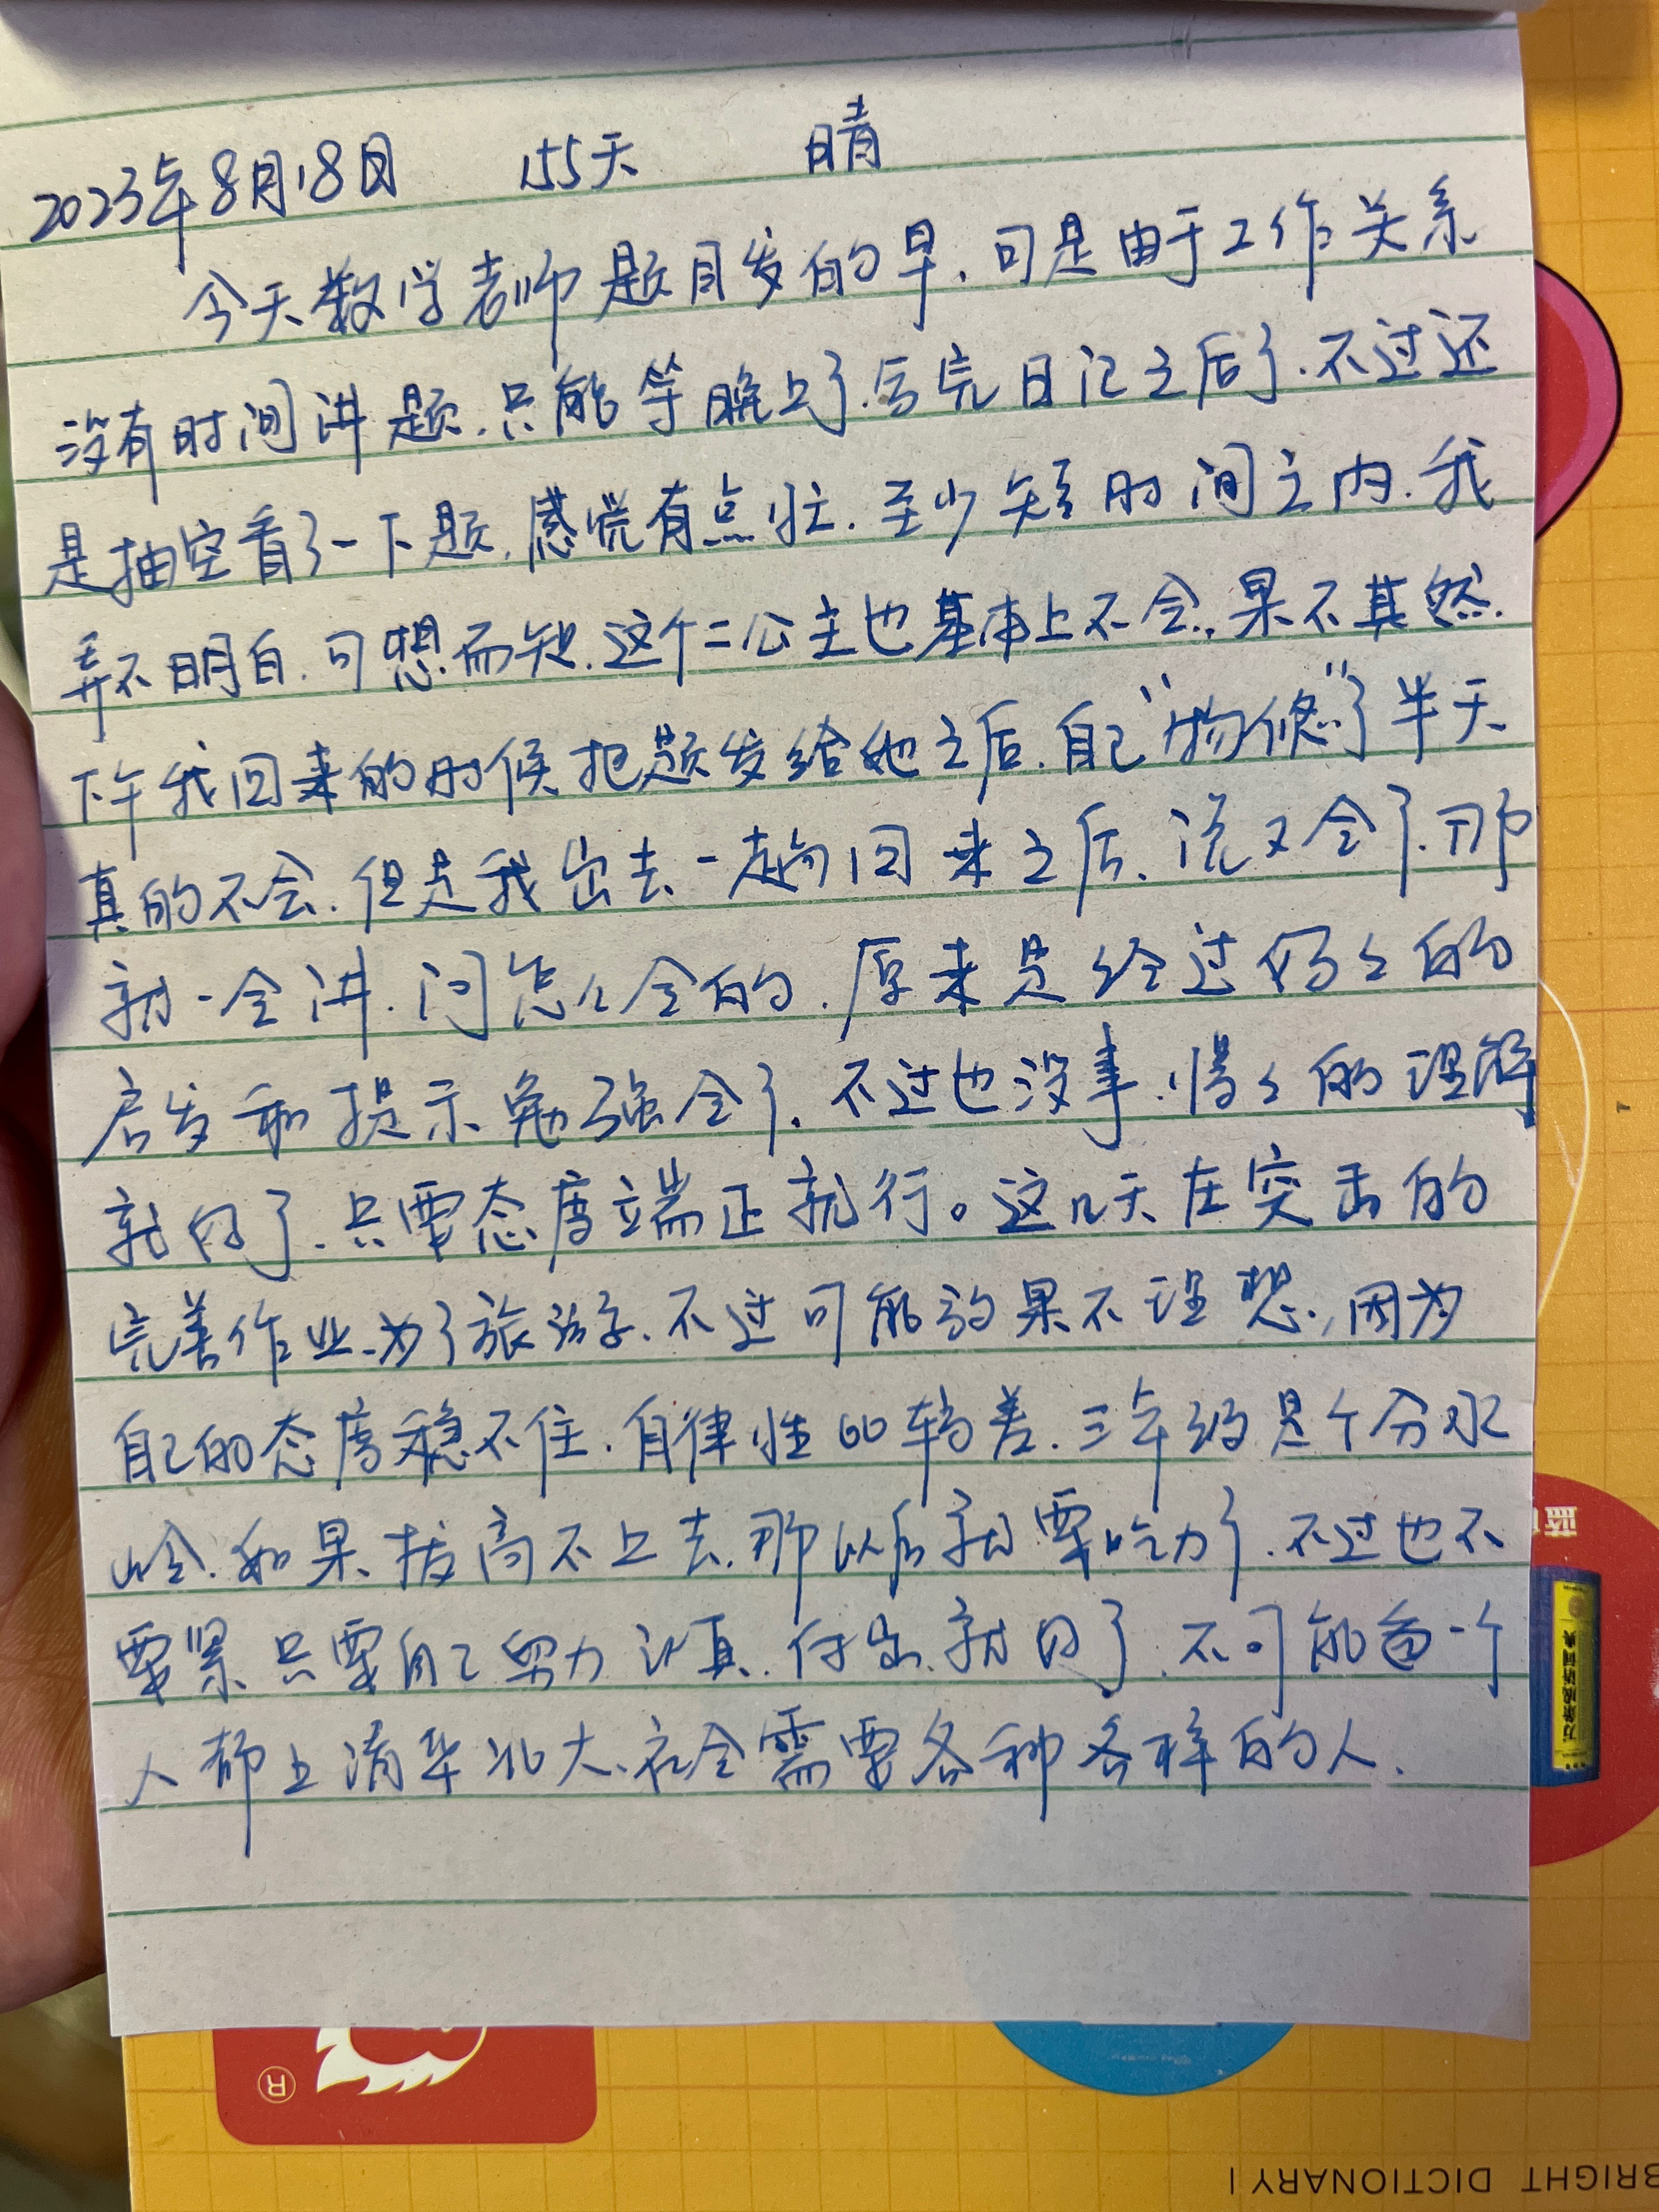 2023年8月18日 155天 晴
今天数学老师题目发的早.可是由于工作关系
没有时间讲题.只能等晚上了.写完日记之后了.不过还
是抽空看了一下题.感觉有点忙.至少短时间之内.我
弄不明白.可想而知.这个二公主也基本上不会.果不其然.
下午我回来的时候把题发给她之后.自己“物修”了半天
真的不会.但是我出去一趟回来之后.说又会了.那
就一会讲.问怎么会的.原来是经过妈々的
启发和提示勉强会了.不过也没事.慢々的理解
就向了.只要态度端正就行。这几天在突击的
完善作业.为了旅游.不过可能效果不理想.因为
自己的态度稳不住.自律性比较差.三年级是个分水
岭.如果拔高不上去.那以后就要吃力了.不过也不
要紧.只要自己努力认真.付出就向了.不可能每一个
人都上清华北大.社会需要各种各样的人.
BRIGHT DICTIONARY
®